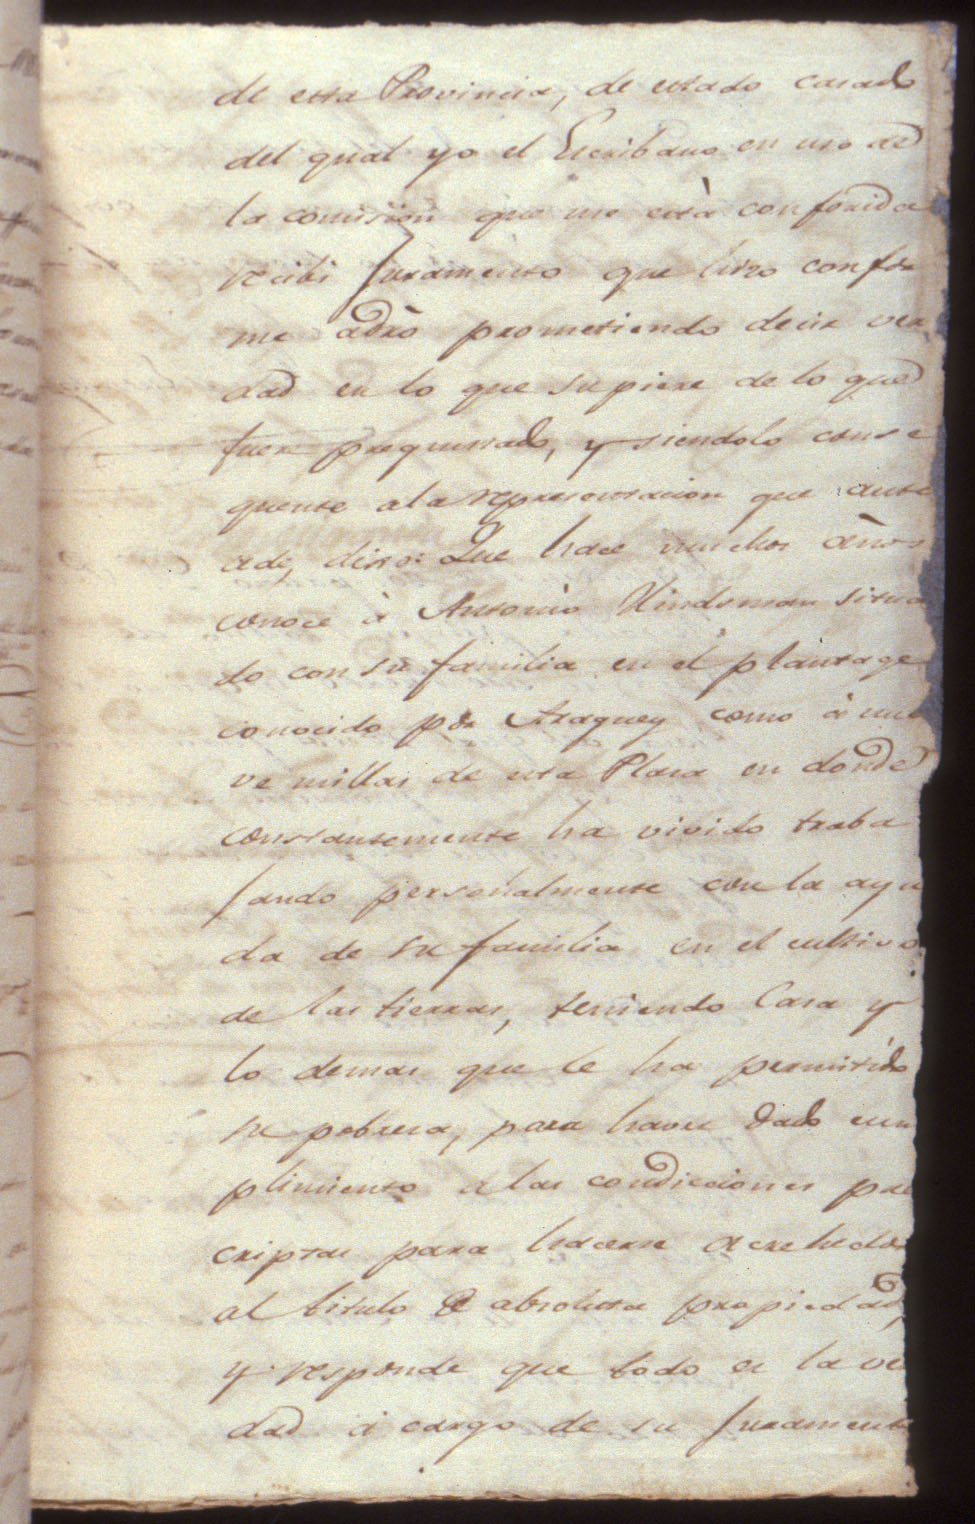 de esta Provincia, de estado casado
del qual yo el Escribano en uso de
la comision que me està conferida
recibi Juramento que hizo confor
me àdrò prometiendo decir ver
dad en lo que supiere de lo que
fuere preguntado, y siendolo conse
quente a la representacion que ante
cede, dixo: Que hace muchos años
conoce à Antonio Hindsman situa
do con su familia en el plantage
conocido por Araquey como à nue
ve millas de esta Plaza en donde
constantemente ha vivido traba
jando personalmente con la ayu
da de su familia en el cultivo
de las tierras, teniendo Casa y
lo demas que le ha permitido
su pobreza, para haver dado cum
plimiento a las condiciones pres
criptas para hacerse acrehedor
al titulo de absoluta propiedad,
y responde que todo es la ver
dad à cargo de su Juramento